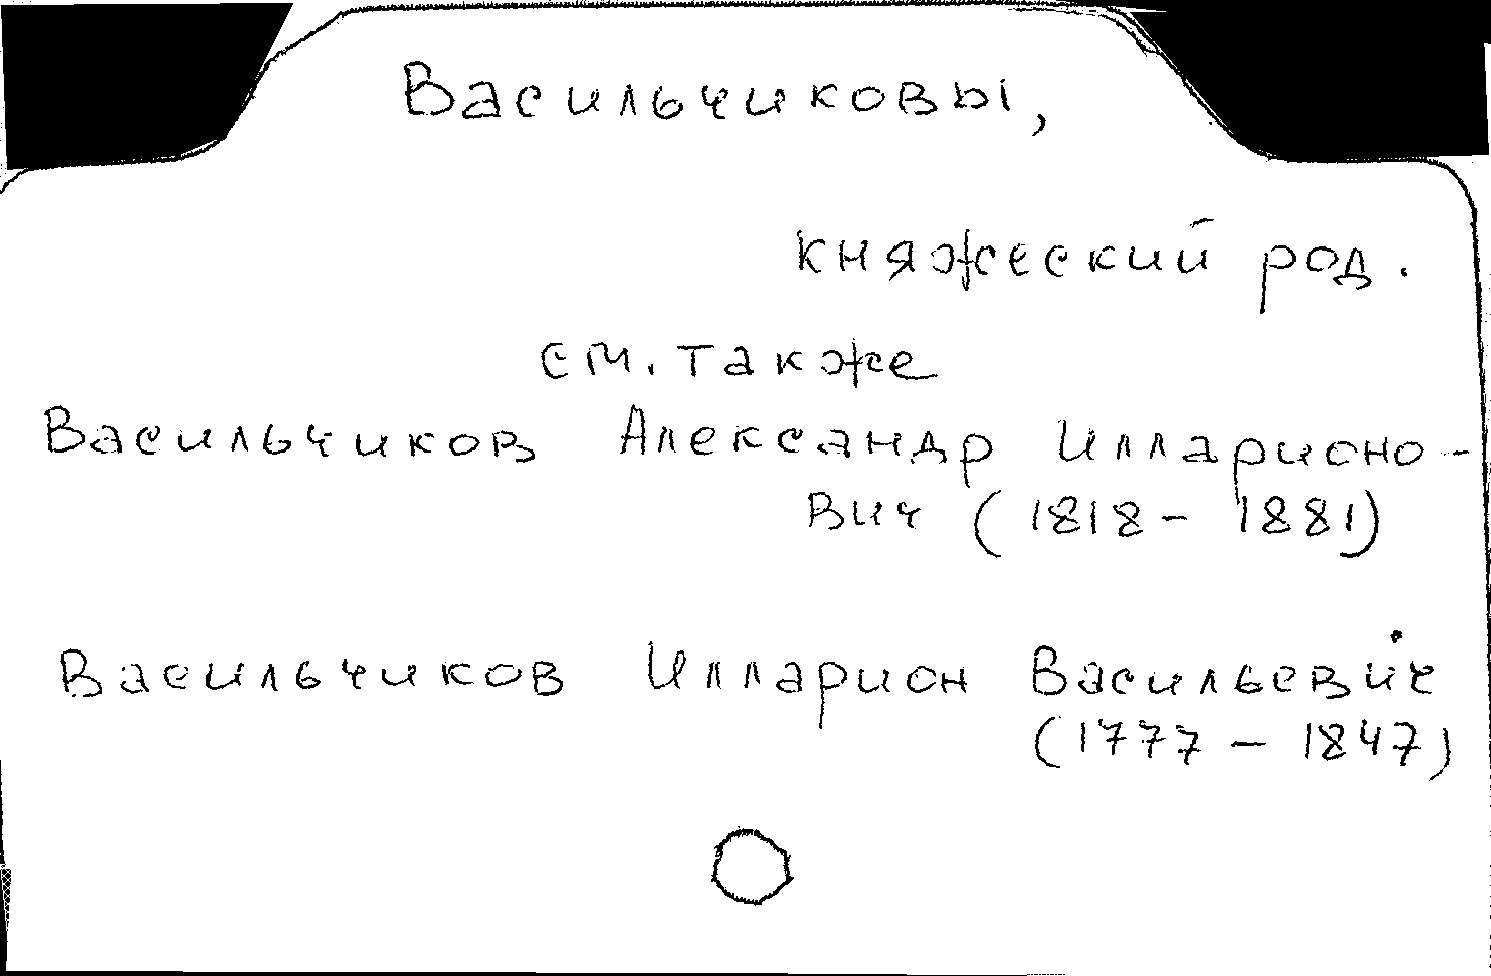 Васильчиковы,
княжеский род.
см. также
Васильчиков Александр Илларионо-
вич (1818 - 1881)
Васильчиков Илларион Васильевич
(1777 - 1847)